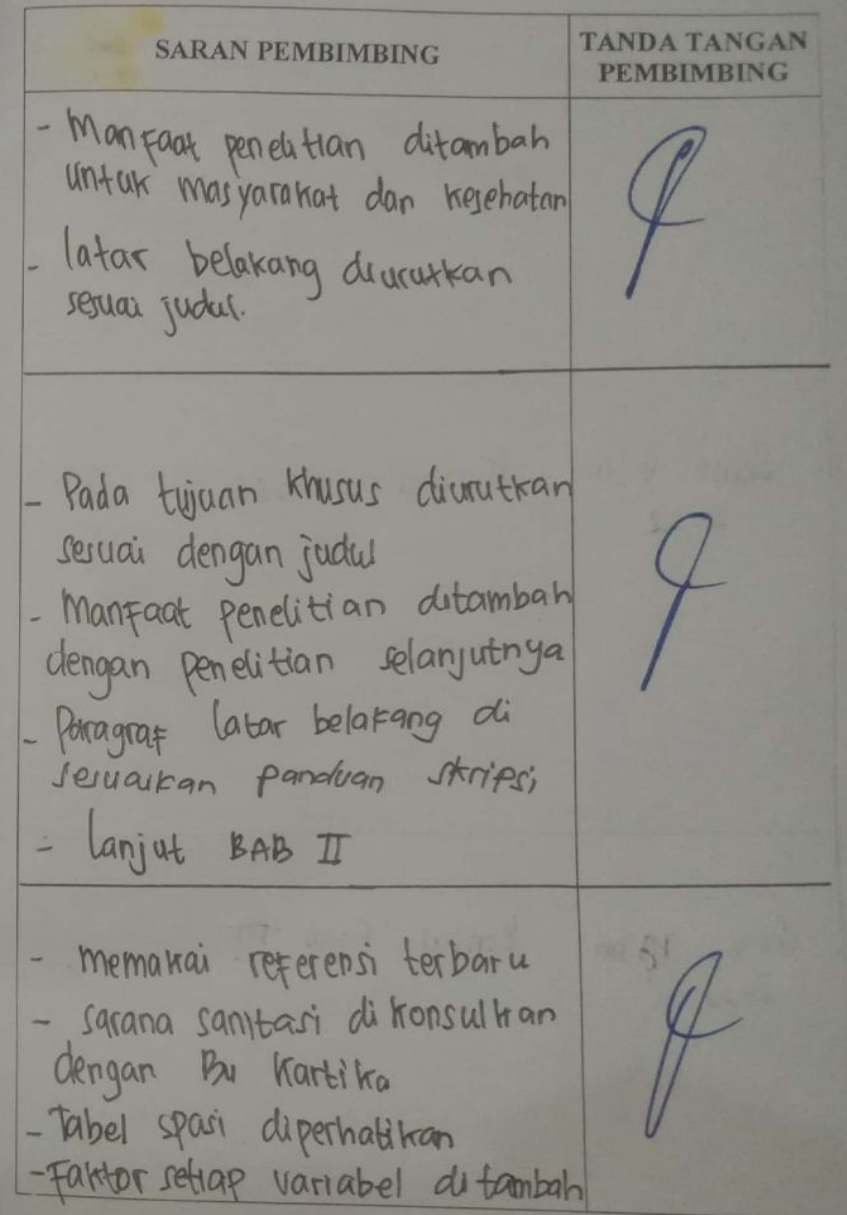 SARAN PEMBIMBING
TANDA TANGAN
PEMBIMBING
- Manfaat penelitian ditambah
untuk masyarakat dan kesehatan
- latar belakang diurutkan
sesuai judul.
- Pada tujuan khusus diurutkan
sesuai dengan judul
- Manfaat penelitian ditambah
dengan penelitian selanjutnya
- Paragraf latar belakang di
sesuaikan panduan skripsi,
- lanjut BAB II
- memakai referensi terbaru
- sarana sanitasi di konsulkan
dengan Bu Kartika
- Tabel spasi diperhatikan
- Faktor setiap variabel di tambah